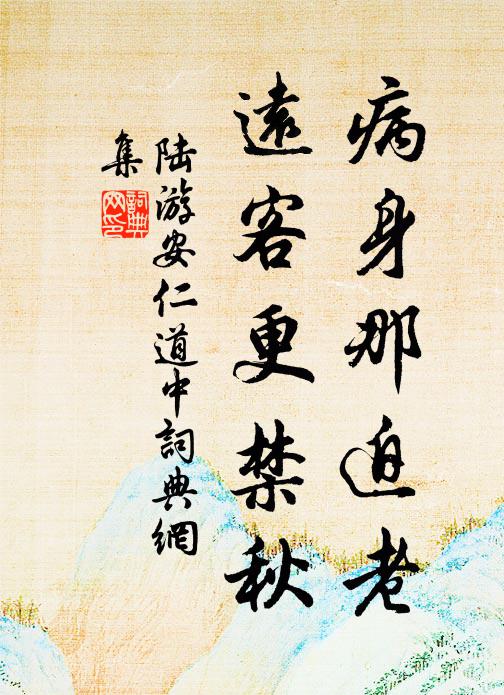 病身那迫老
遠客更禁秋
陆游安仁道中詞典網
集
詞典網印